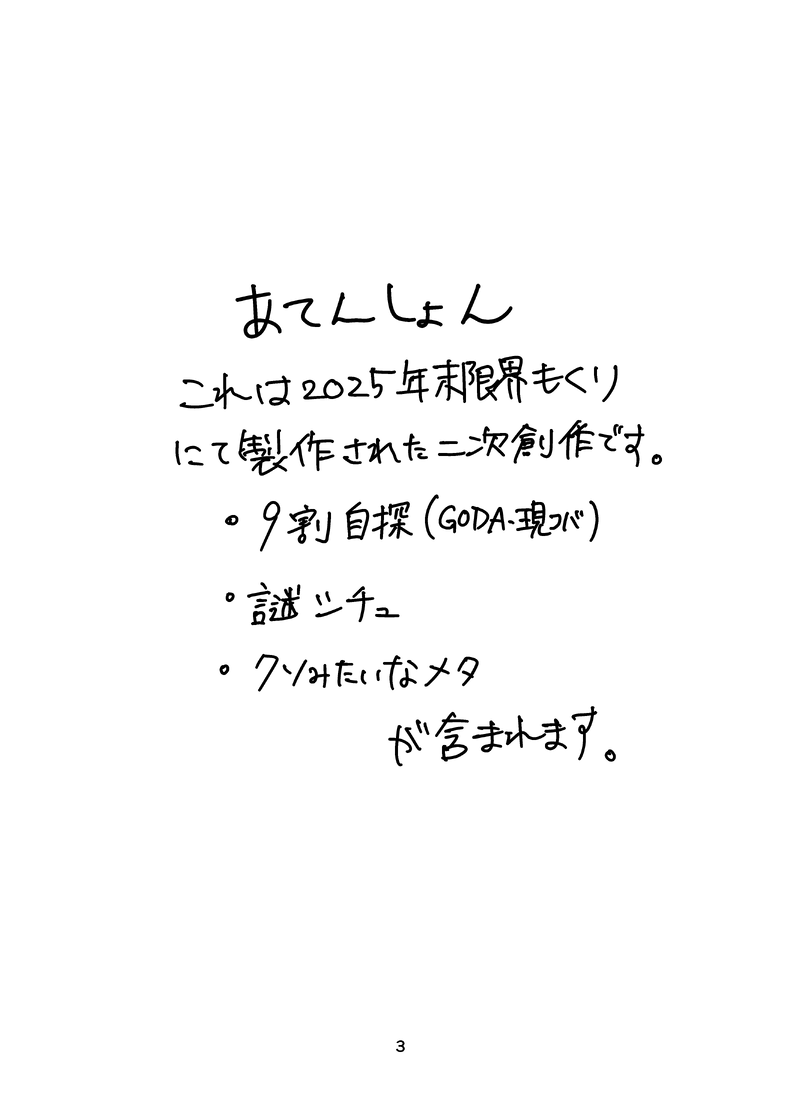 あてんしょん
これは2025年末限界もくり
にて製作された二次創作です。
・9割自探(GODA・現コバ)
・謎シチュ
・クソみたいなメタ
が含まれます。
3